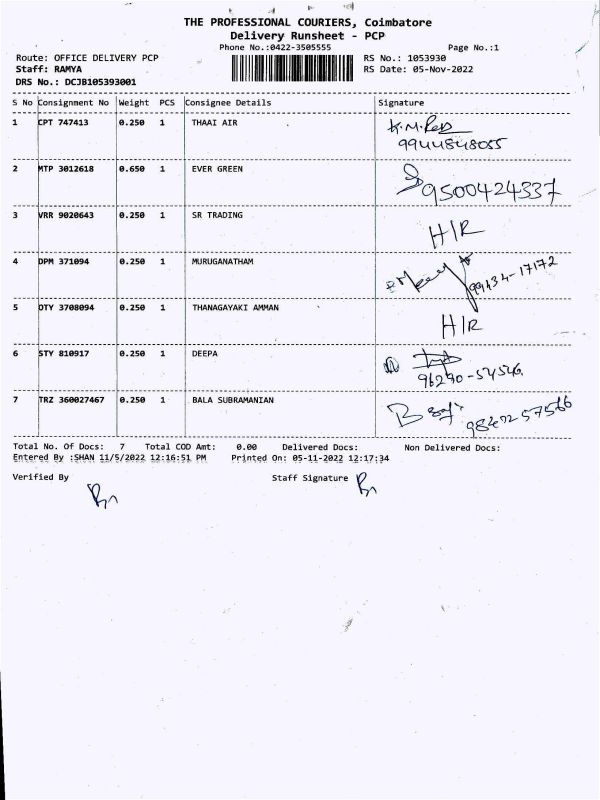 THE PROFESSIONAL COURIERS, Coimbatore
Delivery Runsheet - PCP
Phone No.:0422-3505555 Page No.:1
Route: OFFICE DELIVERY PCP RS No.: 1053930
Staff: RAMYA RS Date: 05-Nov-2022
DRS No.: DCJB105393001
S No Consignment No Weight PCS Consignee Details Signature
1 CPT 747413 0.250 1 THAAI AIR
9944848055
2 MTP 3012618 0.650 1 EVER GREEN
9500424337
3 VRR 9020643 0.250 1 SR TRADING
H/R
4 DPM 371094 0.250 1 MURUGANATHAM
99434-17172
5 OTY 3708094 0.250 1 THANAGAYAKI AMMAN
H/R
6 STY 810917 0.250 1 DEEPA
96290-54546
7 TRZ 360027467 0.250 1 BALA SUBRAMANIAN
Total No. Of Docs: 7 Total COD Amt: 0.00 Delivered Docs: Non Delivered Docs:
Entered By :SHAN 11/5/2022 12:16:51 PM Printed On: 05-11-2022 12:17:34
Verified By Staff Signature